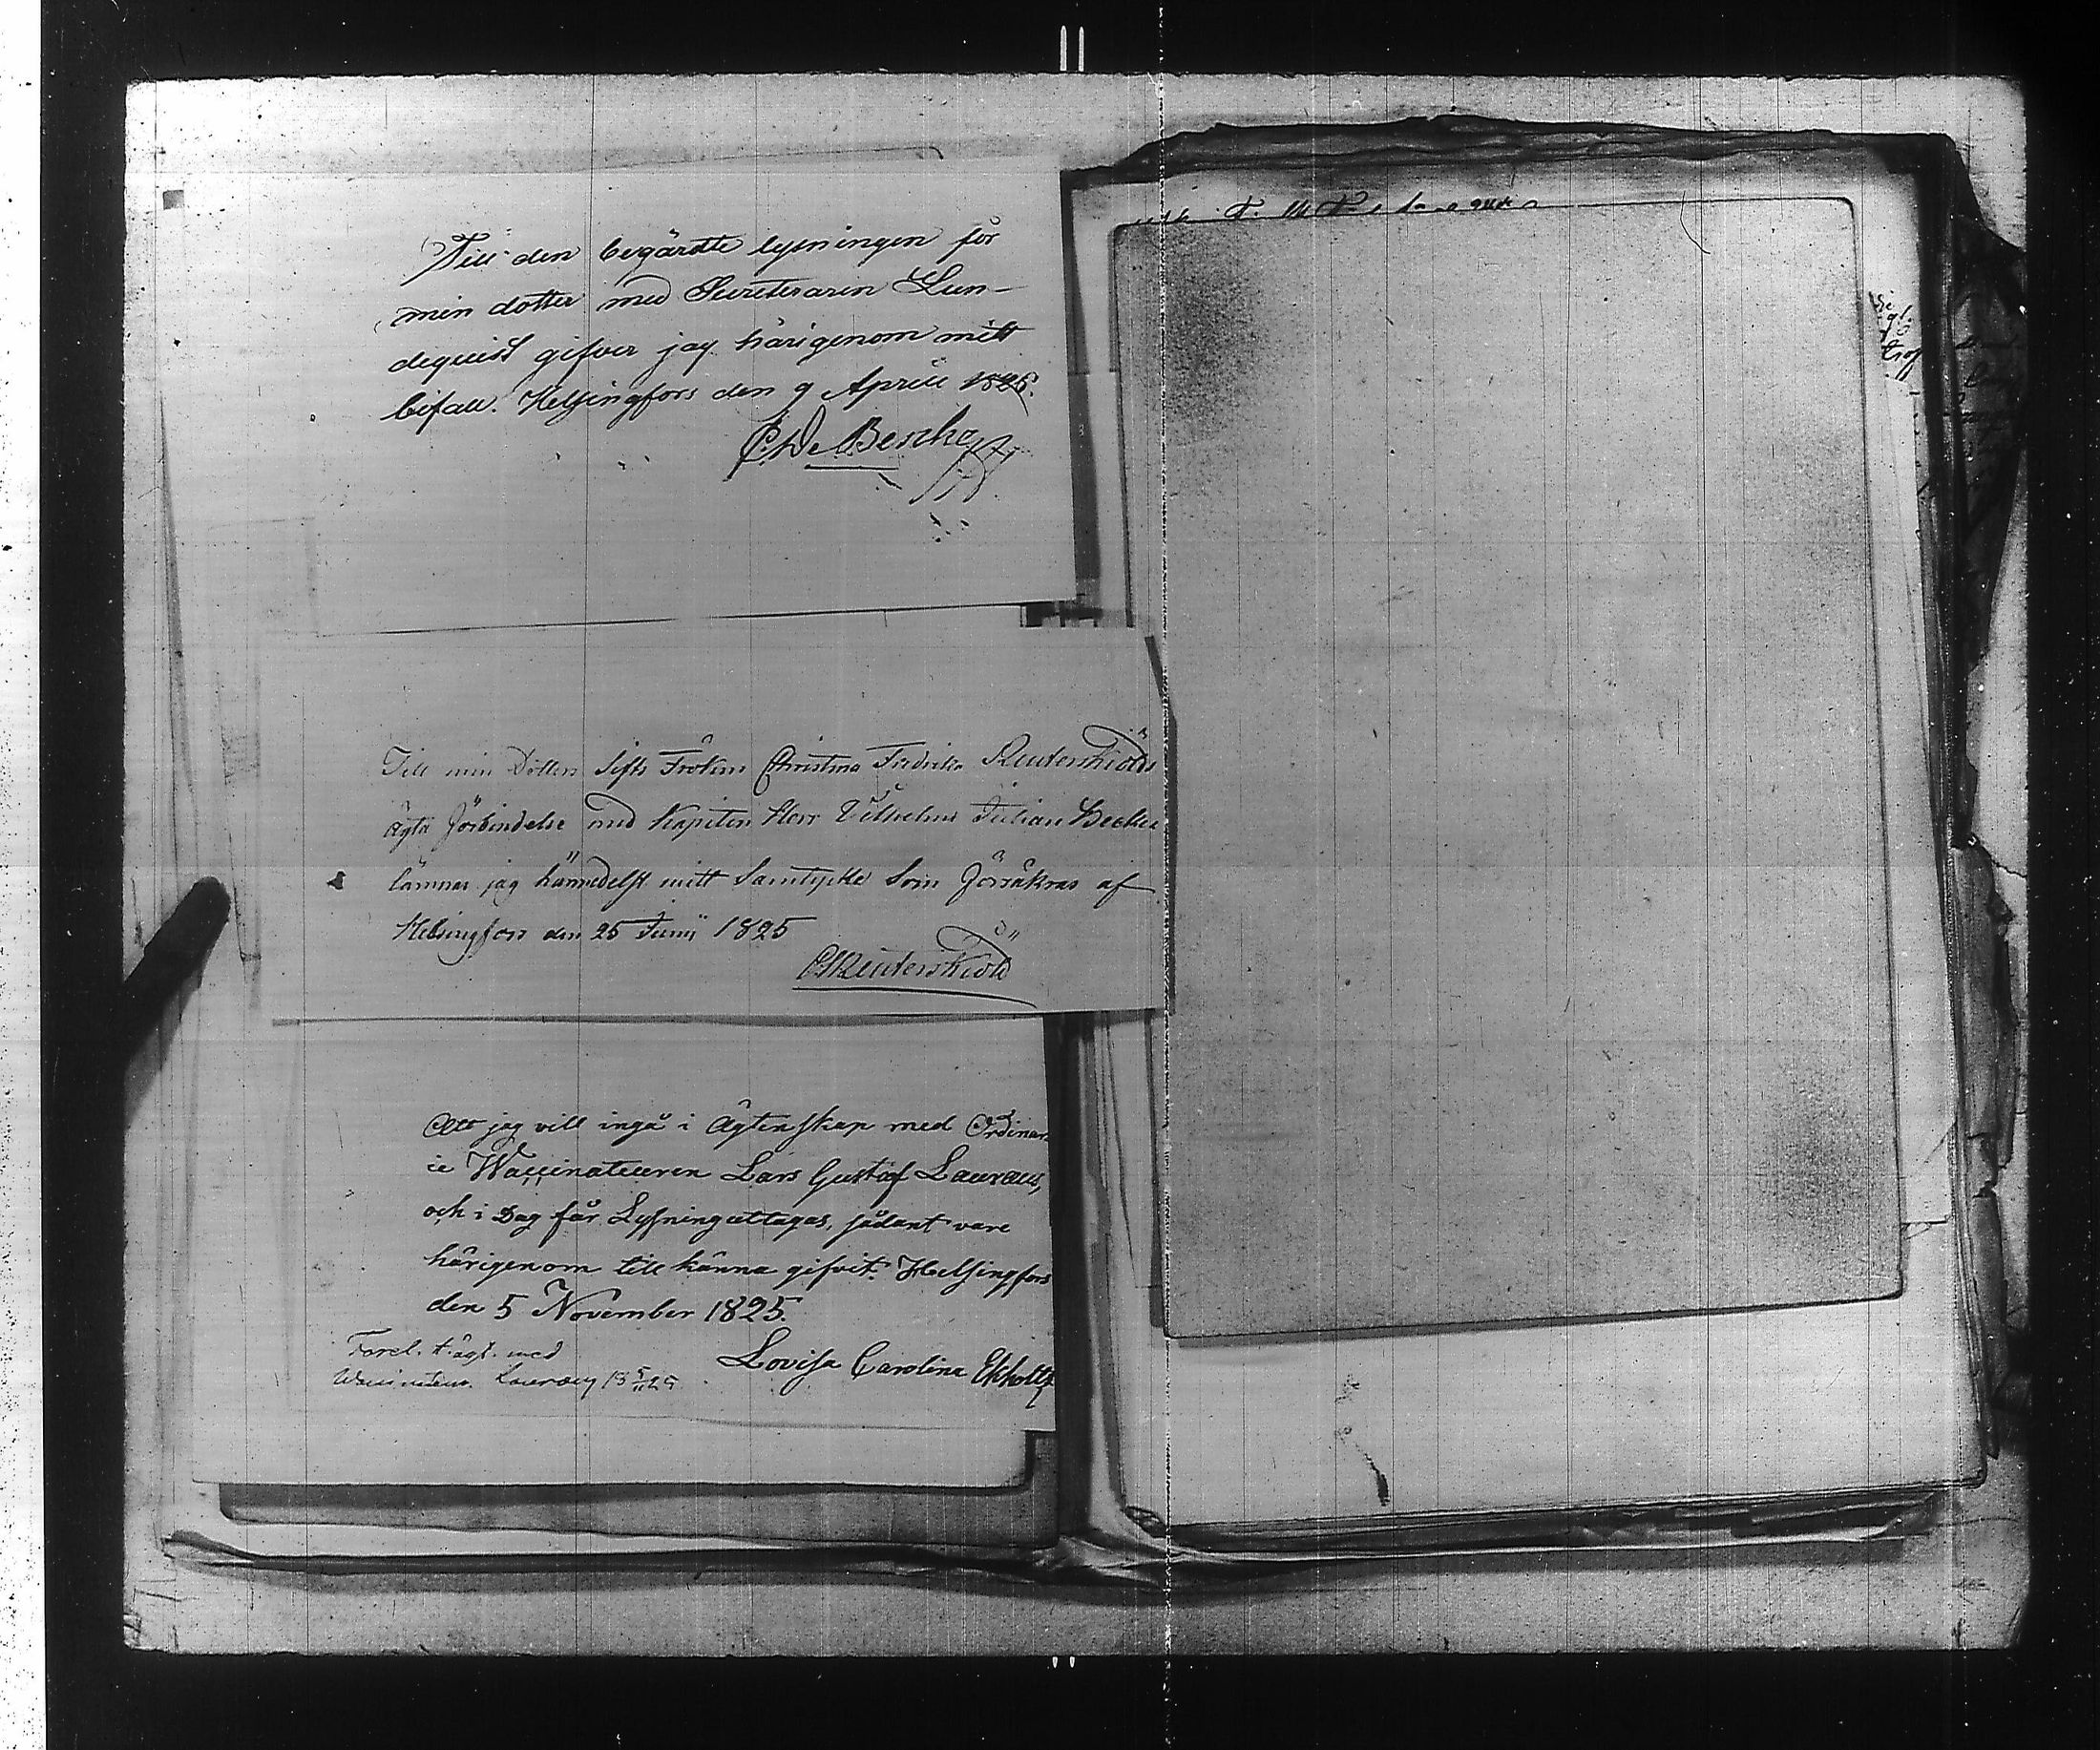 Till den begärdte lysningen för
min dotter med Secreteraren Lun-
dequist gifver jag härigenom mitt
bifall. Helsingfors den 9 Aprill 1825.
Till min Dotters Fröken Christina Fredrika Reuterskiölds
ägta förbindelse med Kapiten Herr Vilhelm Julian Becker
lämnar jag härmedelst mitt Samtycke Som försäkras af
Helsingfors den 25 Junij 1825
CReuterskiöld
Att jag vill ingå i Ägtenskap med Ordinar-
ie Waccinateuren Lars Gustaf Lauraus,
och i Dag får Lysning uttagas, sådant vare
härigenom till känna gifvit. Helsingfors
den 5 November 1825.
Lovisa Carolina Ekholtz
med